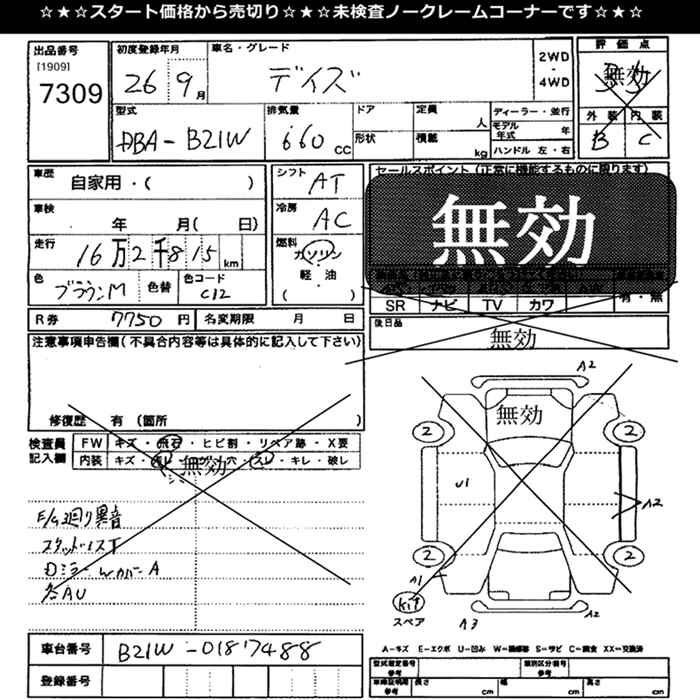 ☆★☆スタート価格から売切り☆★☆未検査ノークレームコーナーです☆★☆
出品番号
[1909]
7309
初度登録年月
26 9月
車名・グレード
デイズ
2WD
・
4WD
評価点
無効
外装 内装
B C
型式
DBA-B21W
排気量
660 CC
ドア
形状
定員 人
積載 kg
ディーラー・並行
モデル年式 年
ハンドル 左・右
車歴
自家用・( )
車検
年 月( 日)
走行
16万2千815km
色
ブラウンM
色替
色コード
C12
シフト
AT
冷房
AC
燃料
ガソリン
・
軽・油
( )
セールスポイント(正常に機能するものに限ります)
無効
SR ナビ TV カワ
有・無
R券 7750円
名変期限 月 日
後日品
無効
注意事項申告欄(不具合内容等は具体的に記入して下さい)
修復歴 有(箇所 )
検査員記入欄
FW キズ・飛石・ヒビ割・リペア跡・X要
内装 キズ・汚レ・コゲ・穴・スレ・キレ・破レ
無効
E/G廻り異音
スタッドレスT
Dミラーウィンカー A
各AU
車台番号
B21W-0187488
登録番号
A2
無効
2 2
U1
A2
2 2
A1
kit
スペア
A3
A2
A-キズ E-エクボ U-凹み W-補修跡 S-サビ C-腐食 XX-交換済
型式指定番号
参考
類別区分番号
参考
車検証明期
参考
長さ cm
幅 cm
高さ cm